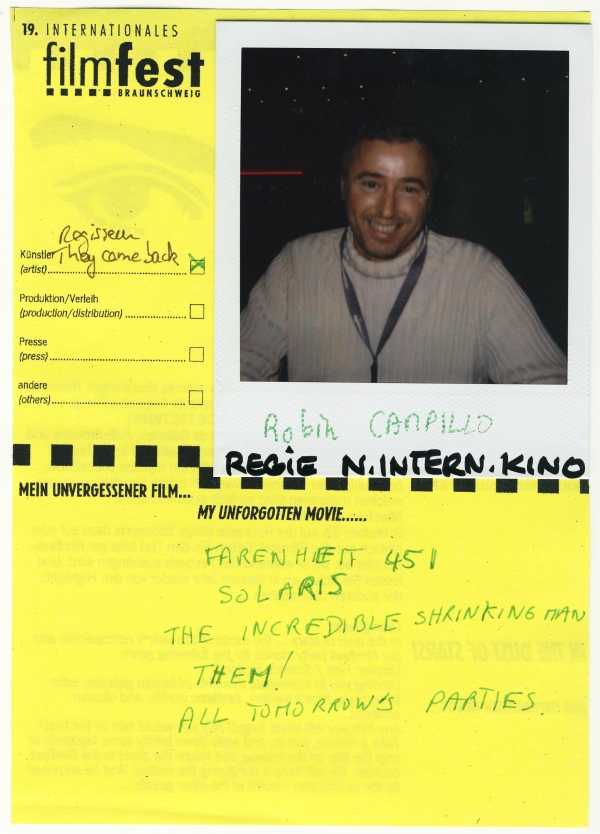 19. INTERNATIONALES
filmfest
BRAUNSCHWEIG
Regisseur
Künstler They came back
(artist)
Produktion/Verleih
(production/distribution)
Presse
(press)
andere
(others)
Robin CAMPILLO
REGIE N.INTERN.KINO
MEIN UNVERGESSENER FILM...
MY UNFORGOTTEN MOVIE......
FARENHEIT 451
SOLARIS
THE INCREDIBLE SHRINKING MAN
THEM!
ALL TOMORROWS PARTIES.